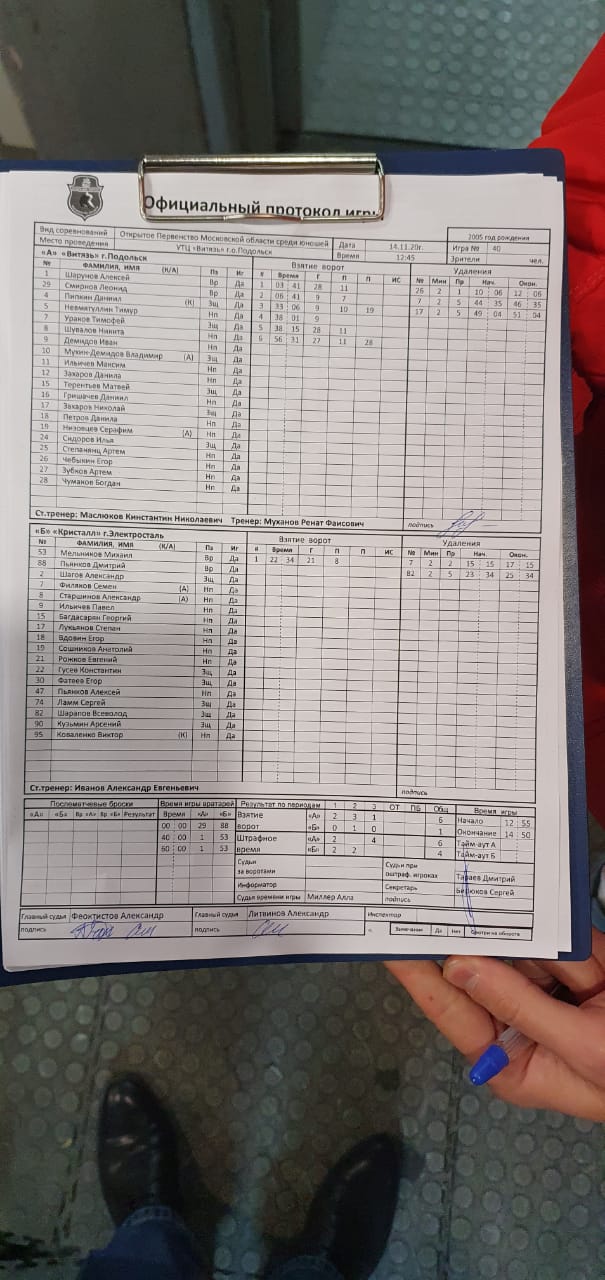 Официальный протокол игры
Вид соревнований Открытое Первенство Московской области среди юношей Дата 14.11.20г. 2005 год рождения
Место проведения УТЦ «Витязь» г.о.Подольск Время 12:45 Игра № 40
Зрители чел.
«А» «Витязь» г.Подольск Взятие ворот Удаления
№ ФАМИЛИЯ, ИМЯ (К/А) Пз Иг # Время Г П П ИС № Мин Пр Нач. Окон.
1 Шарунов Алексей Вр Да 1 03 41 28 11 26 2 1 10 06 12 06
29 Смирнов Леонид Вр Да 2 06 41 9 7 7 2 5 44 35 46 35
4 Пипкин Даниил (К) Зщ Да 3 33 06 9 10 19 17 2 5 49 04 51 04
5 Невматуллин Тимур Нп Да 4 38 01 9
7 Ураков Тимофей Зщ Да 5 38 15 28 11
8 Шувалов Никита Нп Да 6 56 31 27 11 28
9 Демидов Иван Нп Да
10 Мухин-Демидов Владимир (А) Зщ Да
11 Ильичев Максим Нп Да
12 Захаров Данила Нп Да
15 Терентьев Матвей Зщ Да
16 Гришачев Даниил Нп Да
17 Захаров Николай Зщ Да
18 Петров Данила Нп Да
19 Низовцев Серафим (А) Нп Да
24 Сидоров Илья Зщ Да
25 Степанянц Артем Нп Да
26 Чебыкин Егор Нп Да
27 Зубков Артем Нп Да
28 Чумаков Богдан Нп Да
Ст.тренер: Маслюков Кинстантин Николаевич Тренер: Муханов Ренат Фаисович подпись
«Б» «Кристалл» г.Электросталь Взятие ворот Удаления
№ ФАМИЛИЯ, ИМЯ (К/А) Пз Иг # Время Г П П ИС № Мин Пр Нач. Окон.
53 Мельников Михаил Вр Да 1 22 34 21 8 7 2 2 15 15 17 15
88 Пьянков Дмитрий Вр Да 82 2 5 23 34 25 34
2 Шагов Александр Зщ Да
7 Филяков Семен (А) Нп Да
8 Старшинов Александр (А) Нп Да
9 Ильичев Павел Нп Да
15 Багдасарян Георгий Нп Да
17 Лукьянов Степан Нп Да
18 Вдовин Егор Нп Да
19 Сошников Анатолий Нп Да
21 Рожков Евгений Нп Да
22 Гусев Константин Зщ Да
30 Фатеев Егор Зщ Да
47 Пьянков Алексей Нп Да
74 Ламм Сергей Зщ Да
82 Шарапов Всеволод Зщ Да
90 Кузьмин Арсений Зщ Да
95 Коваленко Виктор (К) Нп Да
Ст.тренер: Иванов Александр Евгеньевич подпись
Послематчевые броски Время игры вратарей Результат по периодам 1 2 3 ОТ ПБ Общ Время игры
«А» «Б» Вр «А» Вр «Б» Результат Время «А» «Б» Взятие ворот «А» 2 3 1 6 Начало 12 55
00 00 29 88 «Б» 0 1 0 1 Окончание 14 50
40 00 1 53 Штрафное время «А» 2 4 6 Тайм-аут А
60 00 1 53 «Б» 2 2 4 Тайм-аут Б
Судьи за воротами Судьи при оштраф. игроках Тараев Дмитрий
Информатор Секретарь Бирюков Сергей
Судья времени игры Миллер Алла подпись
Главный судья Феоктистов Александр Главный судья Литвинов Александр Инспектор
подпись подпись Замечания Да Нет Смотри на обороте